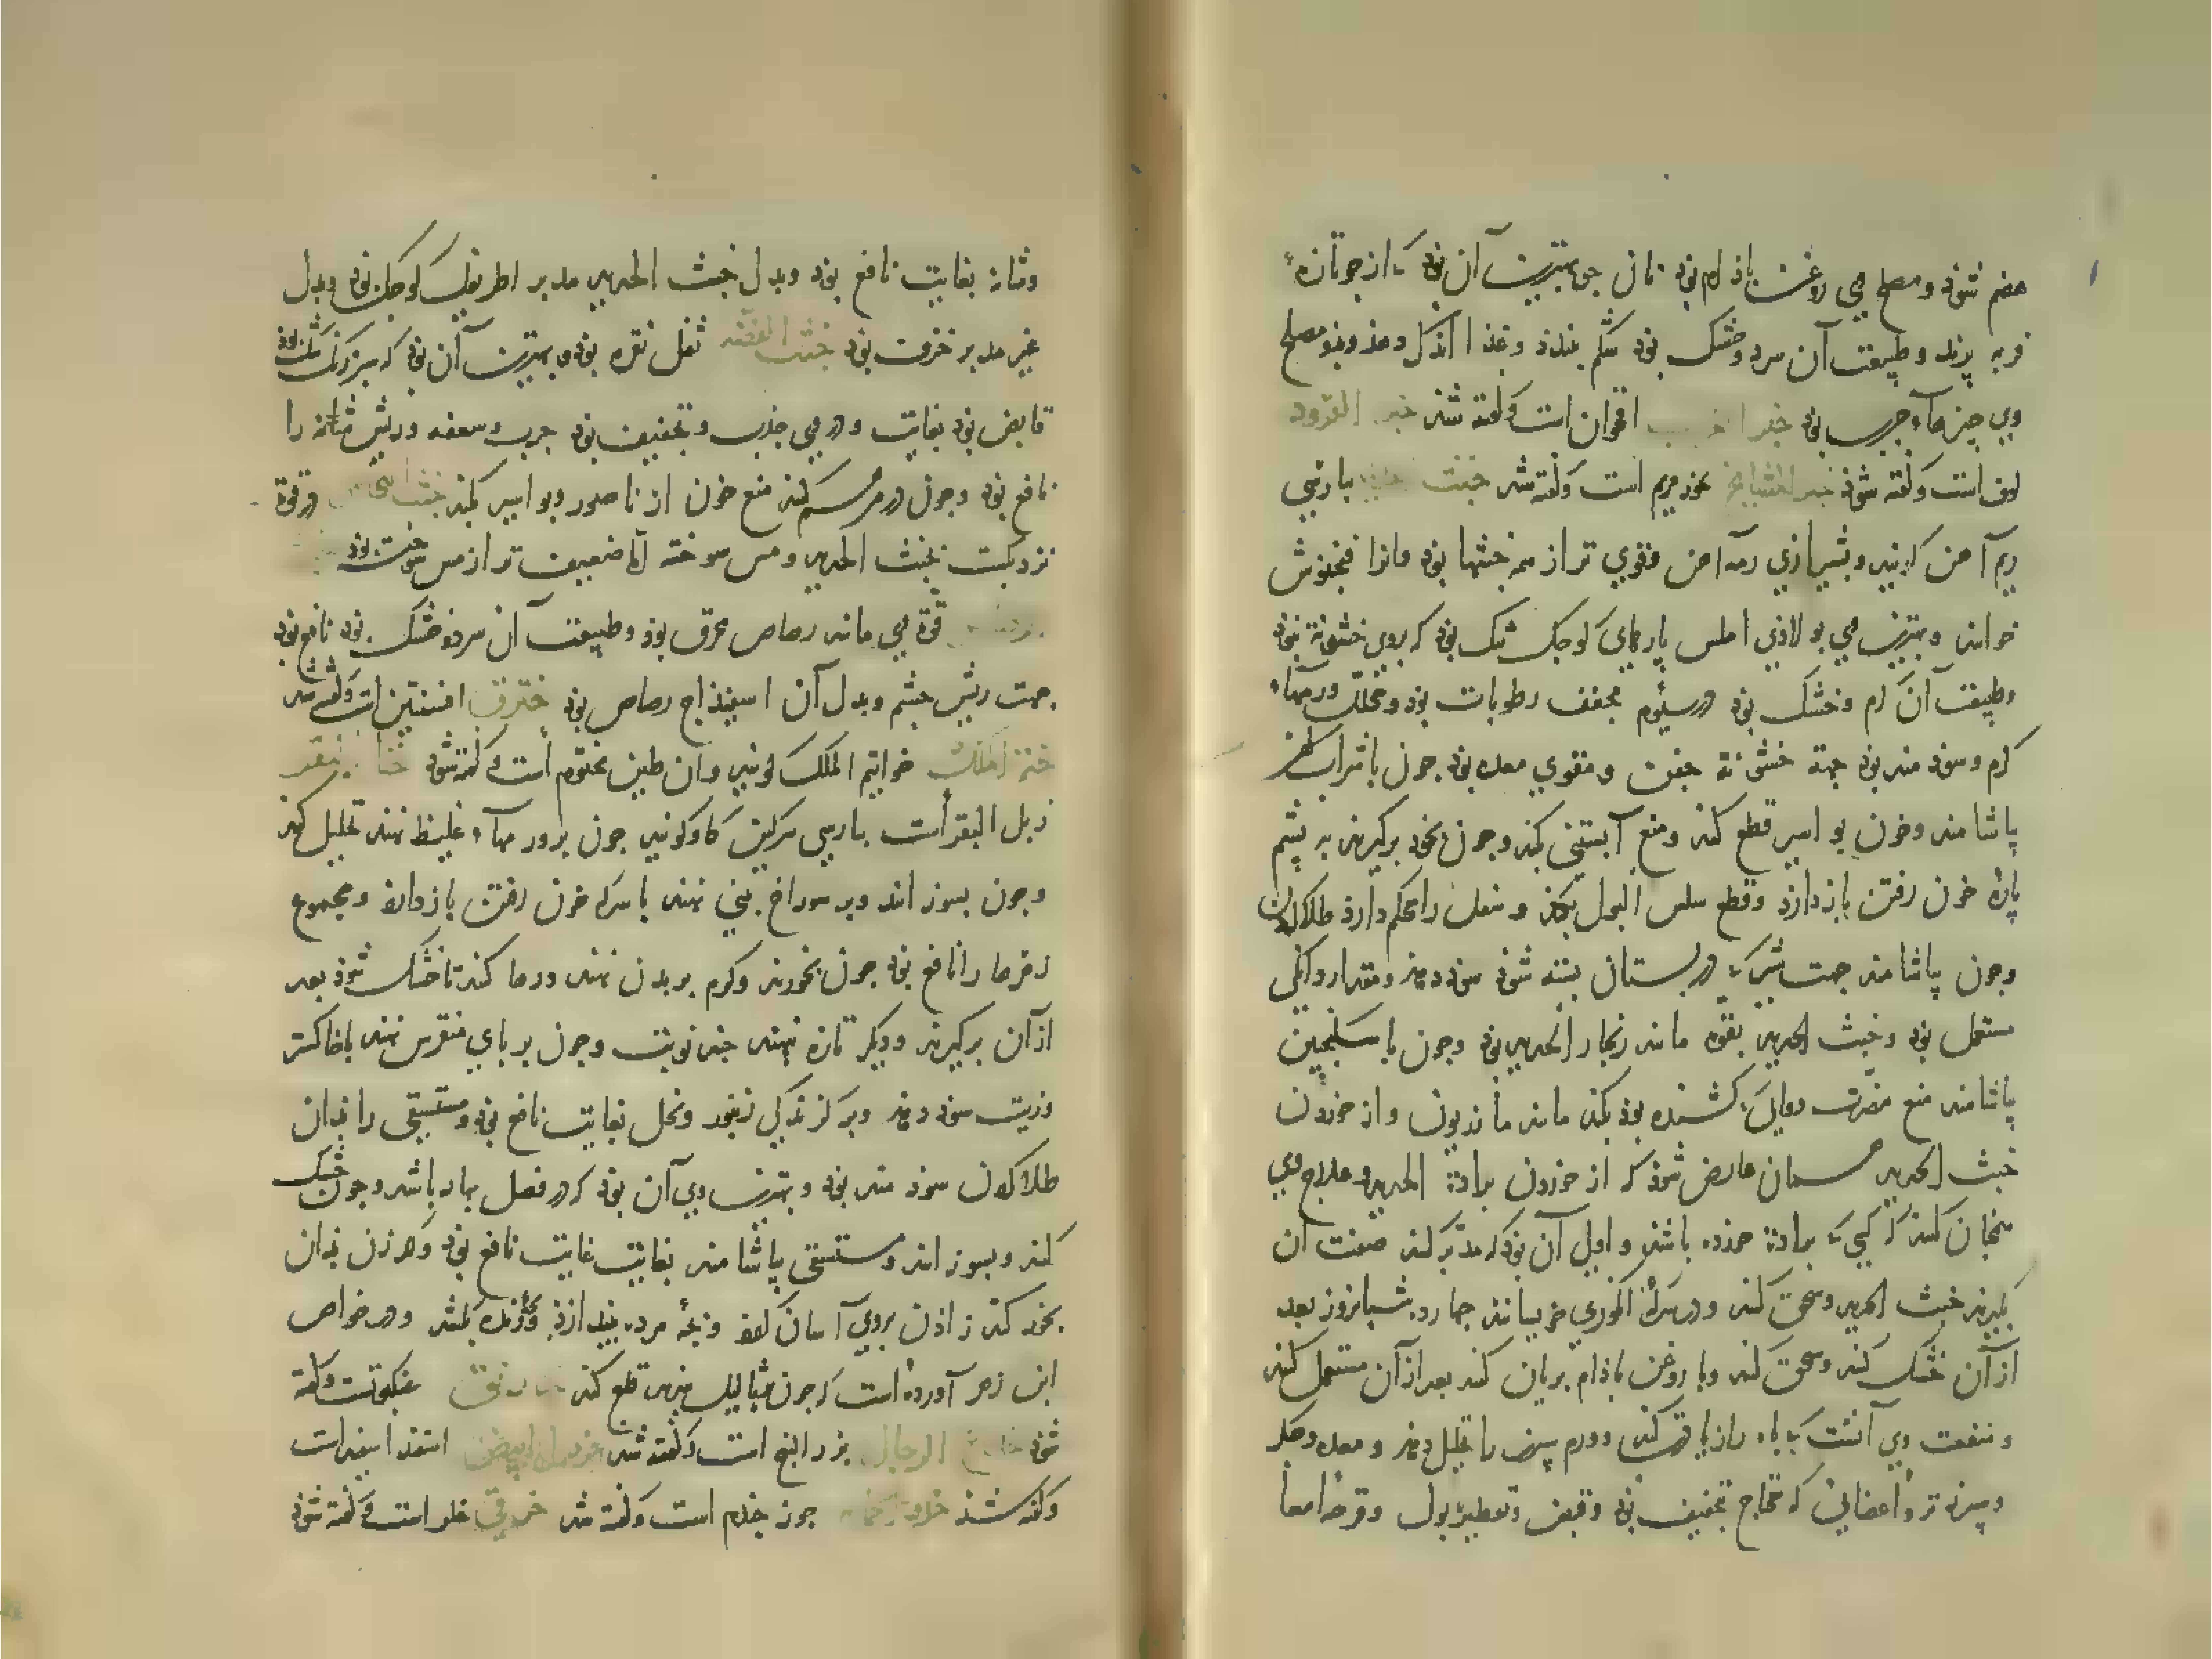 هضم شود و مصلح وی روغن بادام بود نان جو بهترین آن بود که از جو تازه
فربه پزند و طبیعت آن سرد و خشک بود شکم ببندد و غذا اندک دهد و مصلح
وی چیزهاء چرب بود اقحوان است و گفته شد خبز القرود
لوف است و گفته شود خبز المشایخ بخور مریم است و گفته شد خبث بپارسی
ریم آهن گویند و بشیرازی رمه آهن و قوی تر از همه خبثها بود و آنرا فنجنوش
خوانند و بهترین وی پولادی املس پارهای کوچک تنک بود که بروی خشونة نبود
و طبیعت آن گرم و خشک بود در سیوم مجفف رطوبات بود و محلل ورمهاء
گرم و سودمند بود جهة خشونة جفن و مقوی معده بود چون با شراب
بیاشامند و خون بواسیر قطع کند و منع آبستنی کند و چون بخود برگیرند به پشم
پاره خون رفتن باز دارد و قطع سلس البول بکند و سفل را محکم دارد طلا کردن
و چون بیاشامند جهت شیر که در پستان بسته شود سود دهد و مقدار دانگی
مستعمل بود و خبث الحدید بقوة مانند زنجار الحدید بود و چون با سکنجبین
بیاشامند منع مضرت دوای کشنده بود بکند مانند ماذریون و از خوردن
خبث الحدید همان عارض شود که از خوردن برادة الحدید و علاج وی
همچنان کنند که کسی که برادة خورده باشد و اولی آن بود که مدبر کنند صنعت آن
بگیرند خبث الحدید و سحق کنند و در سرکه انگوری خیسانند چهارده شبانروز بعد
از آن خشک کنند و سحق کنند و با روغن بادام بریان کنند بعد از آن مستعمل کنند
و منفعت وی آنست که باه را زیادت کند و ورم سپرز را تحلیل دهد و معده و جگر
و سپرز تر و اعضایی که محتاج تجفیف بود و قبض و تقطیر بول و قرحه امعا
و مثانه بغایت نافع بود و بدل خبث الحدید مدبر اطریفل کوچک بود و بدل
غیر مدبر خزف بود خبث الفضه ثفل نقره بود و بهترین آن بود که سبز رنگ بود
قابض بود بغایت و در وی جذب و تجفیف بود جرب و سعفه و ریش مثانه را
نافع بود و چون در مرهم کنند منع خون از ناصور و بواسیر بکند خبث النحاس در قوة
نزدیکست بخبث الحدید و مس سوخته اما ضعیف تر از مس سوخته بود
قوة وی مانند رصاص محرق بود و طبیعت آن سرد و خشک بود نافع بود
جهت ریش چشم و بدل آن اسپیداج رصاص بود ختزق افسنتین است و گفته شد
ختم الملک خواتیم الملک گویند و آن طین مختوم است و گفته شود خثا البقر
زبل البقر است بپارسی سرگین گاو گویند چون بر ورمهاء غلیظ نهند تحلیل کند
و چون بسوزانند و بر سوراخ بینی نهند با سرکه خون رفتن باز دارد و مجموع
زهرها را نافع بود چون بخورند و گرم بر بدن نهند و رها کنند تا خشک شود بعد
از آن برگیرند و دیگر تازه بنهند چند نوبت و چون بر پای منقرس نهند با خاکستر
و زیت سود دهد و بر گزندگی زنبور و نحل بغایت نافع بود و مستسقی را بدان
طلا کردن سودمند بود و بهترین وی آن بود که در فصل بهار باشد و چون خشک
کنند و بسوزانند و مستسقی بیاشامند بغایت غایت نافع بود و اگر زن بدان
بخور کند زادن بروی آسان گردد و بچه مرده بیندازد و کژدم بکشد و در خواص
ابن زهر آورده است که چون بر ثآلیل بنهند قطع کند خدرنق عنکبوتست و گفته
شود الرجال بزر البنج است و گفته شد خردل ابیض اسفند اسفید است
و گفته شد جوز جندم است و گفته شد خرفی خلر است و گفته شود